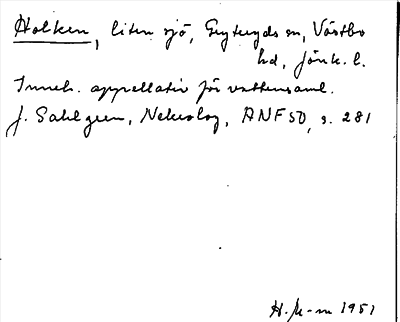 Holken, liten sjö, Gryteryds sn, Västbo
hd, Jönk. l.
Inneh. appellativ för vattensaml.
J. Sahlgren, Nekrolog, ANF 50, s. 281
H. M-m 1951